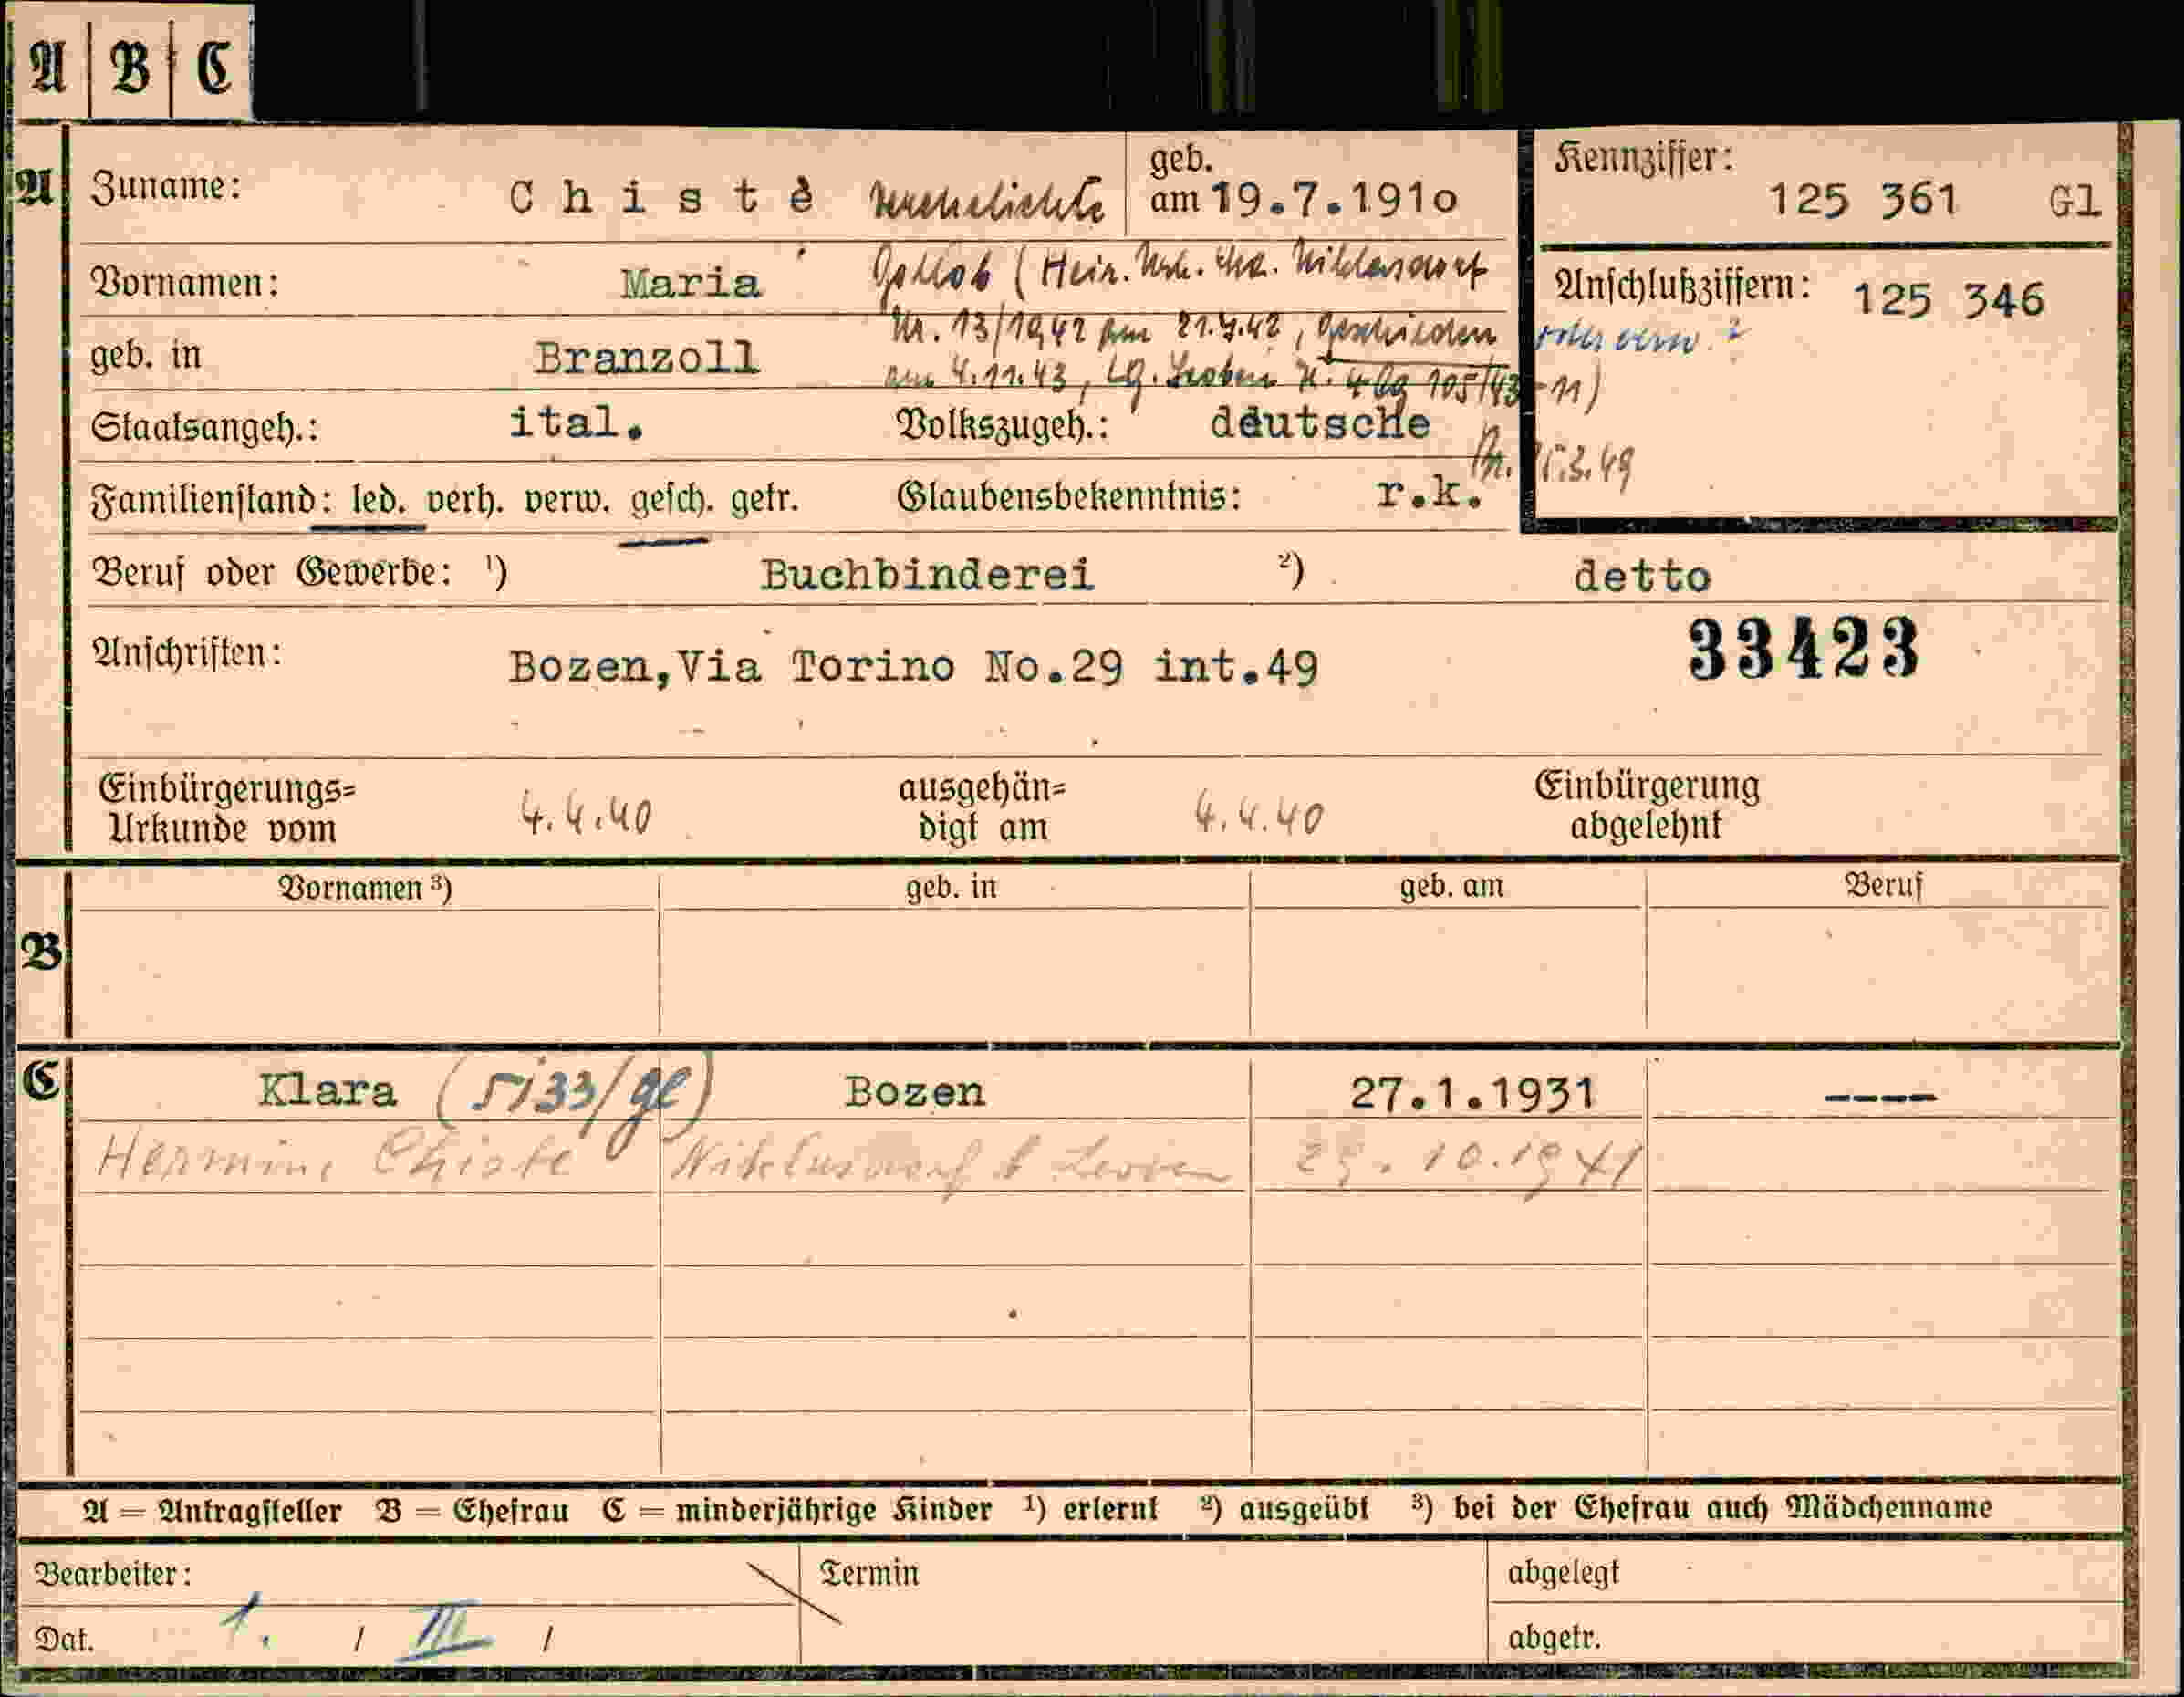 A | B | C
A Zuname: Chistè verehelichte geb. am 19.7.1910 Kennziffer: 125 361 Gl
Vornamen: Maria Gottlob (Heir. Urk. Niklasdorf Anschlußziffern: 125 346
Nr. 13/1942 am 21.7.42, geschieden
geb. in Branzoll
am 4.11.43, Lg. Leoben 4 Cg 105/43-11)
Staatsangeh.: ital. Volkszugeh.: deutsche
15.3.49
Familienstand: led. verh. verw. gesch. getr. Glaubensbekenntnis: r.k.
Beruf oder Gewerbe: ¹) Buchbinderei ²) detto
Anschriften: Bozen,Via Torino No.29 int.49 33423
Einbürgerungs= Urkunde vom 4.4.40 ausgehän= digt am 4.4.40 Einbürgerung abgelehnt
B Vornamen ³) geb. in geb. am Beruf
C Klara (5133/ge) Bozen 27.1.1931 ----
Hermine Chiste Niklasdorf b Leoben 29.10.1941
A = Antragsteller B = Ehefrau C = minderjährige Kinder ¹) erlernt ²) ausgeübt ³) bei der Ehefrau auch Mädchenname
Bearbeiter: Termin abgelegt
Dat. 1. / III / abgetr.